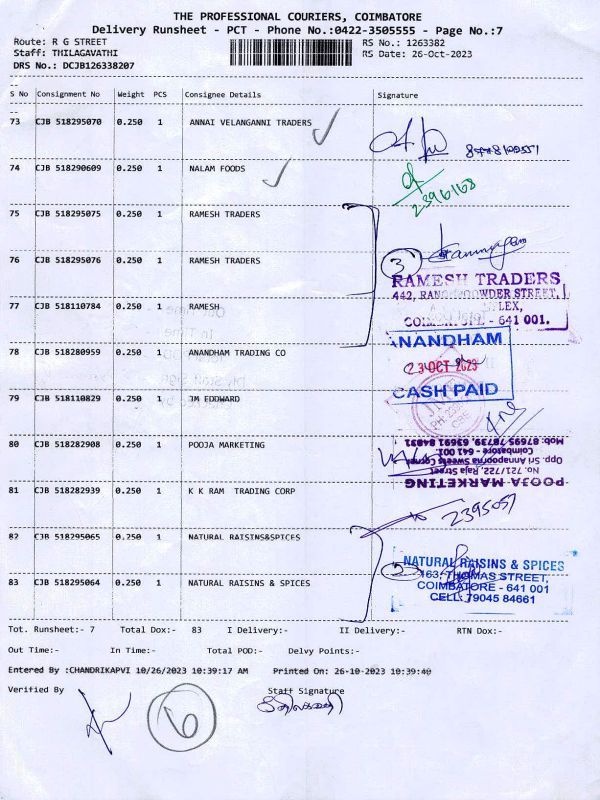 THE PROFESSIONAL COURIERS, COIMBATORE
Delivery Runsheet - PCT - Phone No.:0422-3505555 - Page No.:7
Route: R G STREET RS No.: 1263382
Staff: THILAGAVATHI RS Date: 26-Oct-2023
DRS No.: DCJB126338207
S No Consignment No Weight PCS Consignee Details Signature
73 CJB 518295070 0.250 1 ANNAI VELANGANNI TRADERS
74 CJB 518290609 0.250 1 NALAM FOODS
2396168
75 CJB 518295075 0.250 1 RAMESH TRADERS
76 CJB 518295076 0.250 1 RAMESH TRADERS
3
RAMESH TRADERS
442, STREET,
77 CJB 518110784 0.250 1 RAMESH
641 001.
78 CJB 518280959 0.250 1 ANANDHAM TRADING CO
ANANDHAM
23 OCT 2023
CASH PAID
79 CJB 518110829 0.250 1 JM EDDWARD
80 CJB 518282908 0.250 1 POOJA MARKETING
POOJA MARKETING
No. 721/722, Raja Street,
Opp. Sri Annapoorna Sweets Corner
Coimbatore - 641 001
81 CJB 518282939 0.250 1 K K RAM TRADING CORP
2395057
82 CJB 518295065 0.250 1 NATURAL RAISINS&SPICES
83 CJB 518295064 0.250 1 NATURAL RAISINS & SPICES
2
NATURAL RAISINS & SPICES
163, THOMAS STREET,
COIMBATORE - 641 001
CELL: 79045 84661
Tot. Runsheet:- 7 Total Dox:- 83 I Delivery:- II Delivery:- RTN Dox:-
Out Time:- In Time:- Total POD:- Delvy Points:-
Entered By :CHANDRIKAPVI 10/26/2023 10:39:17 AM Printed On: 26-10-2023 10:39:40
Verified By Staff Signature
6